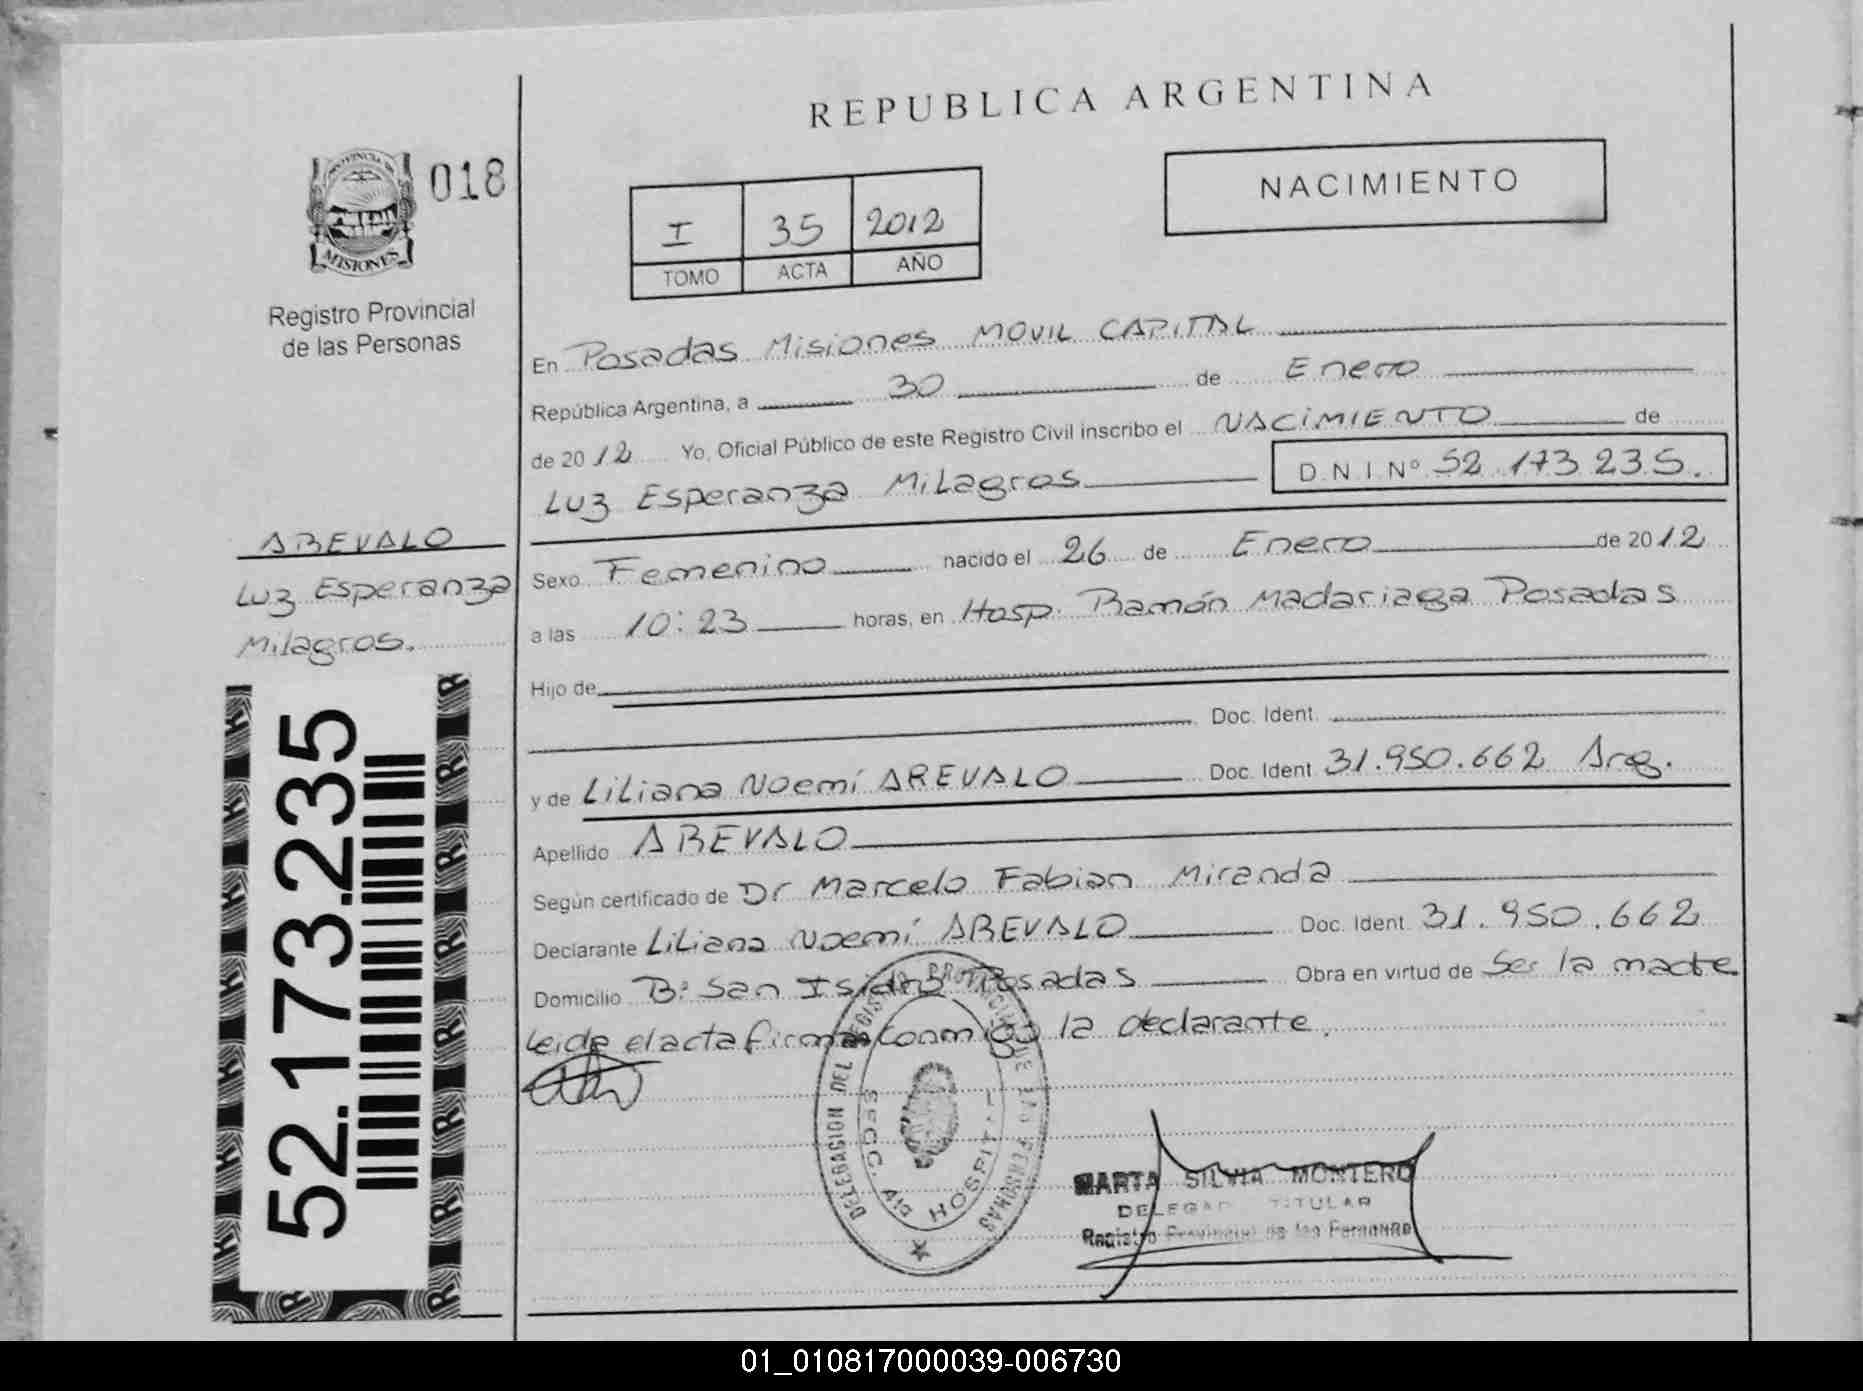 REPUBLICA ARGENTINA
PROVINCIA DE
MISIONES
018
Registro Provincial
de las Personas
I 35 2012
TOMO ACTA AÑO
NACIMIENTO
En Posadas Misiones MOVIL CAPITAL
República Argentina, a 30 de Enero
de 2012 Yo, Oficial Público de este Registro Civil inscribo el NACIMIENTO de
Luz Esperanza Milagros D.N.I.Nº 52.173.235.
AREVALO
Luz Esperanza
Milagros.
Sexo Femenino nacido el 26 de Enero de 2012
a las 10:23 horas, en Hosp. Ramón Madariaga Posadas
Hijo de
Doc. Ident.
y de Liliana Noemí AREVALO Doc. Ident 31.950.662 Arg.
Apellido AREVALO
Según certificado de Dr Marcelo Fabian Miranda
Declarante Liliana Noemí AREVALO Doc. Ident. 31.950.662
Domicilio B: San Isidro Posadas Obra en virtud de Ser la madre
Leida el acta firma conmigo la declarante.
52.173.235
DELEGACION DEL REGISTRO PROVINCIAL DE LAS PERSONAS
HOSPITAL
MARTA SILVIA MONTERO
DELEGADA TITULAR
Registro Provincial de las Personas
01_010817000039-006730